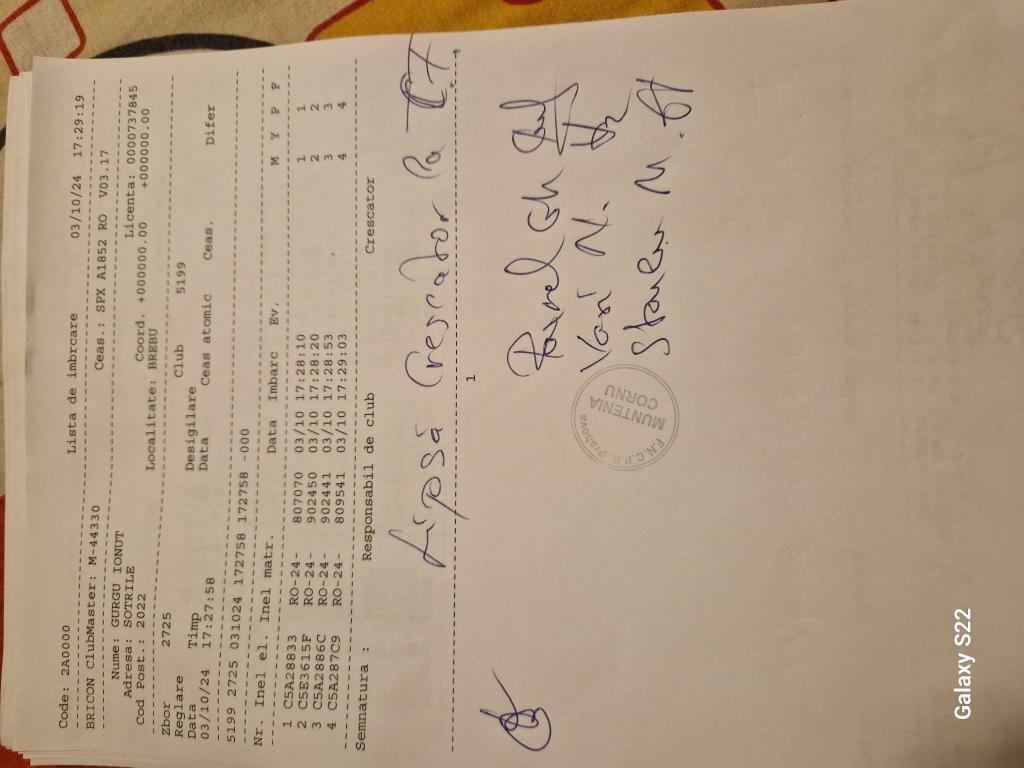 Code: 2A0000 Lista de imbrcare 03/10/24 17:29:19
BRICON ClubMaster: M-44330 Ceas.: SPX A1852 RO V03.17
Nume: GURGU IONUT Licenta: 0000737845
Adresa: SOTRILE Coord. +000000.00 +000000.00
Cod Post.: 2022 Localitate: BREBU
Zbor 2725 Club 5199
Reglare Desigilare
Data Timp Data Ceas atomic Ceas. Difer
03/10/24 17:27:58
5199 2725 031024 172758 172758 -000
Nr. Inel el. Inel matr. Data Imbarc Ev. M Y P F
1 C5A28833 RO-24- 807070 03/10 17:28:10 1 1
2 C5E3615F RO-24- 902450 03/10 17:28:20 2 2
3 C5A2886C RO-24- 902441 03/10 17:28:53 3 3
4 C5A287C9 RO-24- 809541 03/10 17:29:03 4 4
Semnatura : Responsabil de club Crescator
Lipsă Crescător la
1
Vasi N.
F.N.C.P.R. Prahova
MUNTENIA
CORNU
Galaxy S22